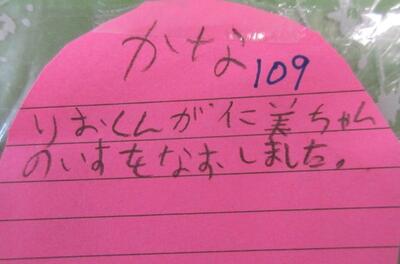 かな
109
りおくんが仁美ちゃん
のいすをなおしました。